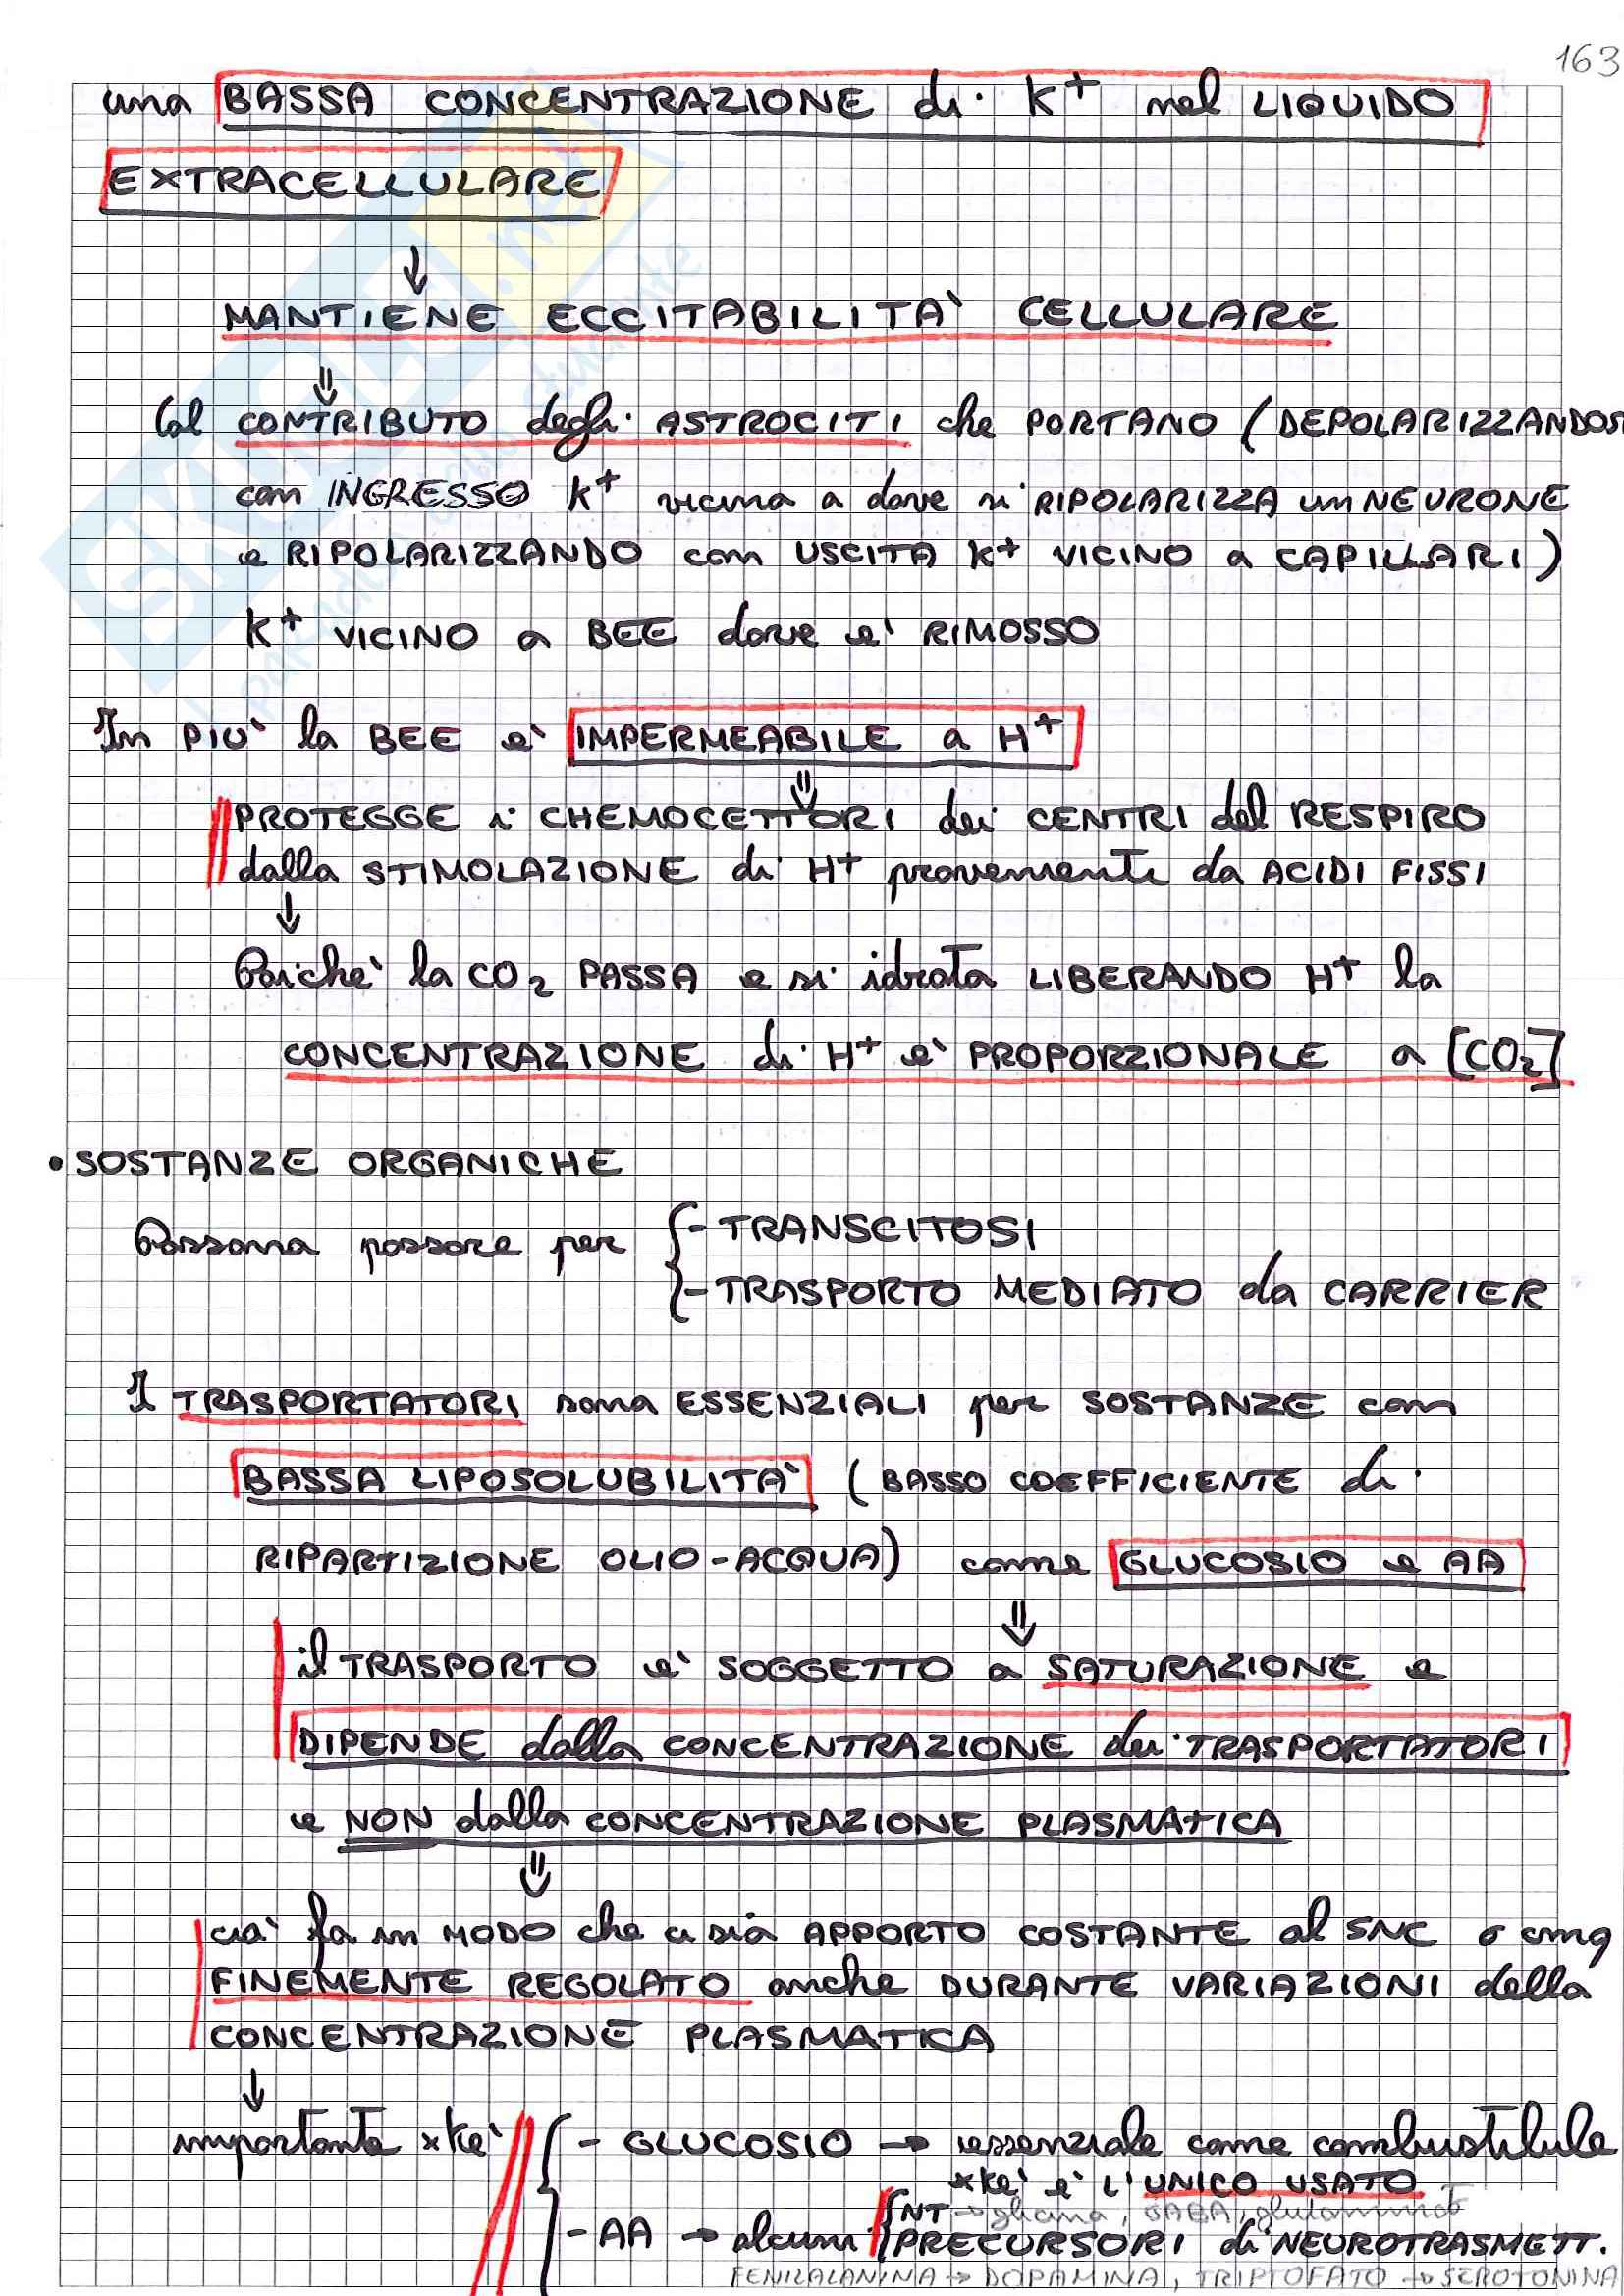 163
una BASSA CONCENTRAZIONE di K+ nel LIQUIDO
EXTRACELLULARE
↓
MANTIENE ECCITABILITA' CELLULARE
⇓
Col CONTRIBUTO degli ASTROCITI che PORTANO (DEPOLARIZZANDOSI
con INGRESSO K+ vicino a dove si RIPOLARIZZA un NEURONE
e RIPOLARIZZANDO con USCITA K+ VICINO a CAPILLARI)
K+ VICINO a BEE dove e' RIMOSSO
In PIU' la BEE e' IMPERMEABILE a H+
⇓
PROTEGGE i CHEMOCETTORI dei CENTRI del RESPIRO
dalla STIMOLAZIONE di H+ provenienti da ACIDI FISSI
↓
Poiche' la CO2 PASSA e si idrata LIBERANDO H+ la
CONCENTRAZIONE di H+ e' PROPORZIONALE a [CO2]
• SOSTANZE ORGANICHE
Possono passare per { - TRANSCITOSI
- TRASPORTO MEDIATO da CARRIER
I TRASPORTATORI sono ESSENZIALI per SOSTANZE con
BASSA LIPOSOLUBILITA' (BASSO COEFFICIENTE di
RIPARTIZIONE OLIO-ACQUA) come GLUCOSIO e AA
⇓
il TRASPORTO e' SOGGETTO a SATURAZIONE e
DIPENDE dalla CONCENTRAZIONE dei TRASPORTATORI
e NON dalla CONCENTRAZIONE PLASMATICA
⇓
cio' fa in MODO che ci sia APPORTO COSTANTE al SNC o cmq
FINEMENTE REGOLATO anche DURANTE VARIAZIONI della
CONCENTRAZIONE PLASMATICA
↓
importante xke' { - GLUCOSIO → essenziale come combustibile
xke' e' l'UNICO USATO
NT → glicina, GABA, glutammato
- AA → alcuni { PRECURSORI di NEUROTRASMETT.
FENILALANINA → DOPAMINA, TRIPTOFATO → SEROTONINA
SKUOLA.net